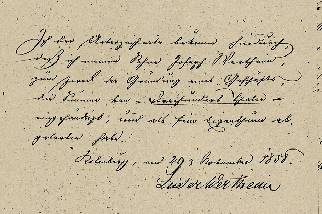 Ich der Unterzeichnete bekenne hierdurch
daß ich meinem Sohne Joseph Wertheim
zum Zweck der Gründung eines Geschäfts,
die Summe von – Thaler –
eingehändigt, und als sein Eigenthum ab-
getreten habe.
den 29 November 1858.
Wertheim